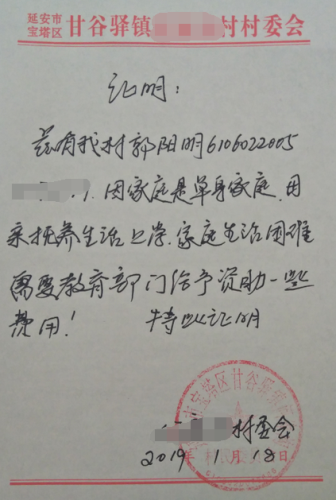 延安市
宝塔区 甘谷驿镇 村村委会
证明:
兹有我村郭阳明6106022005
1.因家庭是单身家庭.用
来抚养生活上学.家庭生活困难
需要教育部门给予资助一些
费用! 特此证明
村委会
2019年1月18日
市宝塔区甘谷驿镇